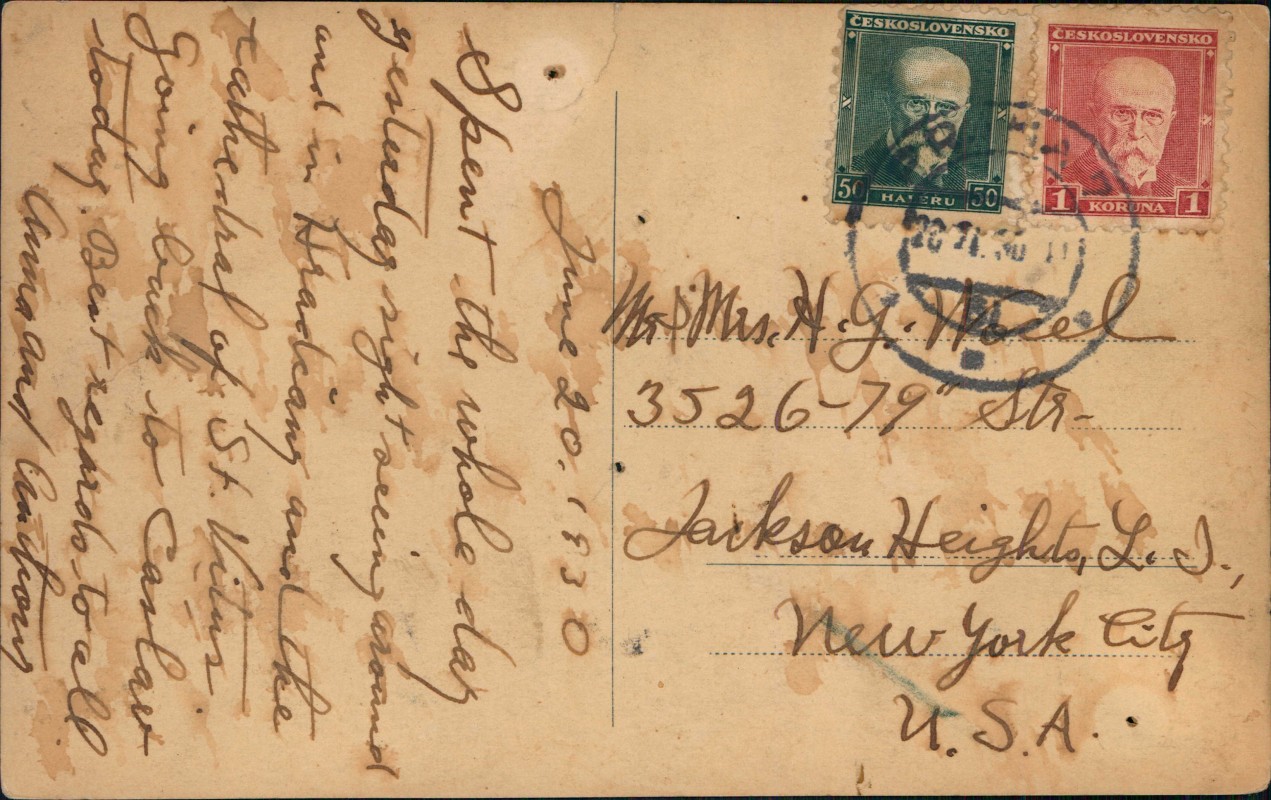 June 20. 1930
Spent the whole day
yesterday sight seeing around
and in Hradčany and the
cathedral of St. Vitus
Going back to Čáslav
today. Best regards to all
Anna and Anthony
ČESKOSLOVENSKO
50 HALÉŘŮ 50
ČESKOSLOVENSKO
1 KORUNA 1
20 VI. 30
Mr & Mrs. H. G.
3526-79" Str-
Jackson Heights, L. I.,
New York City
U. S. A.